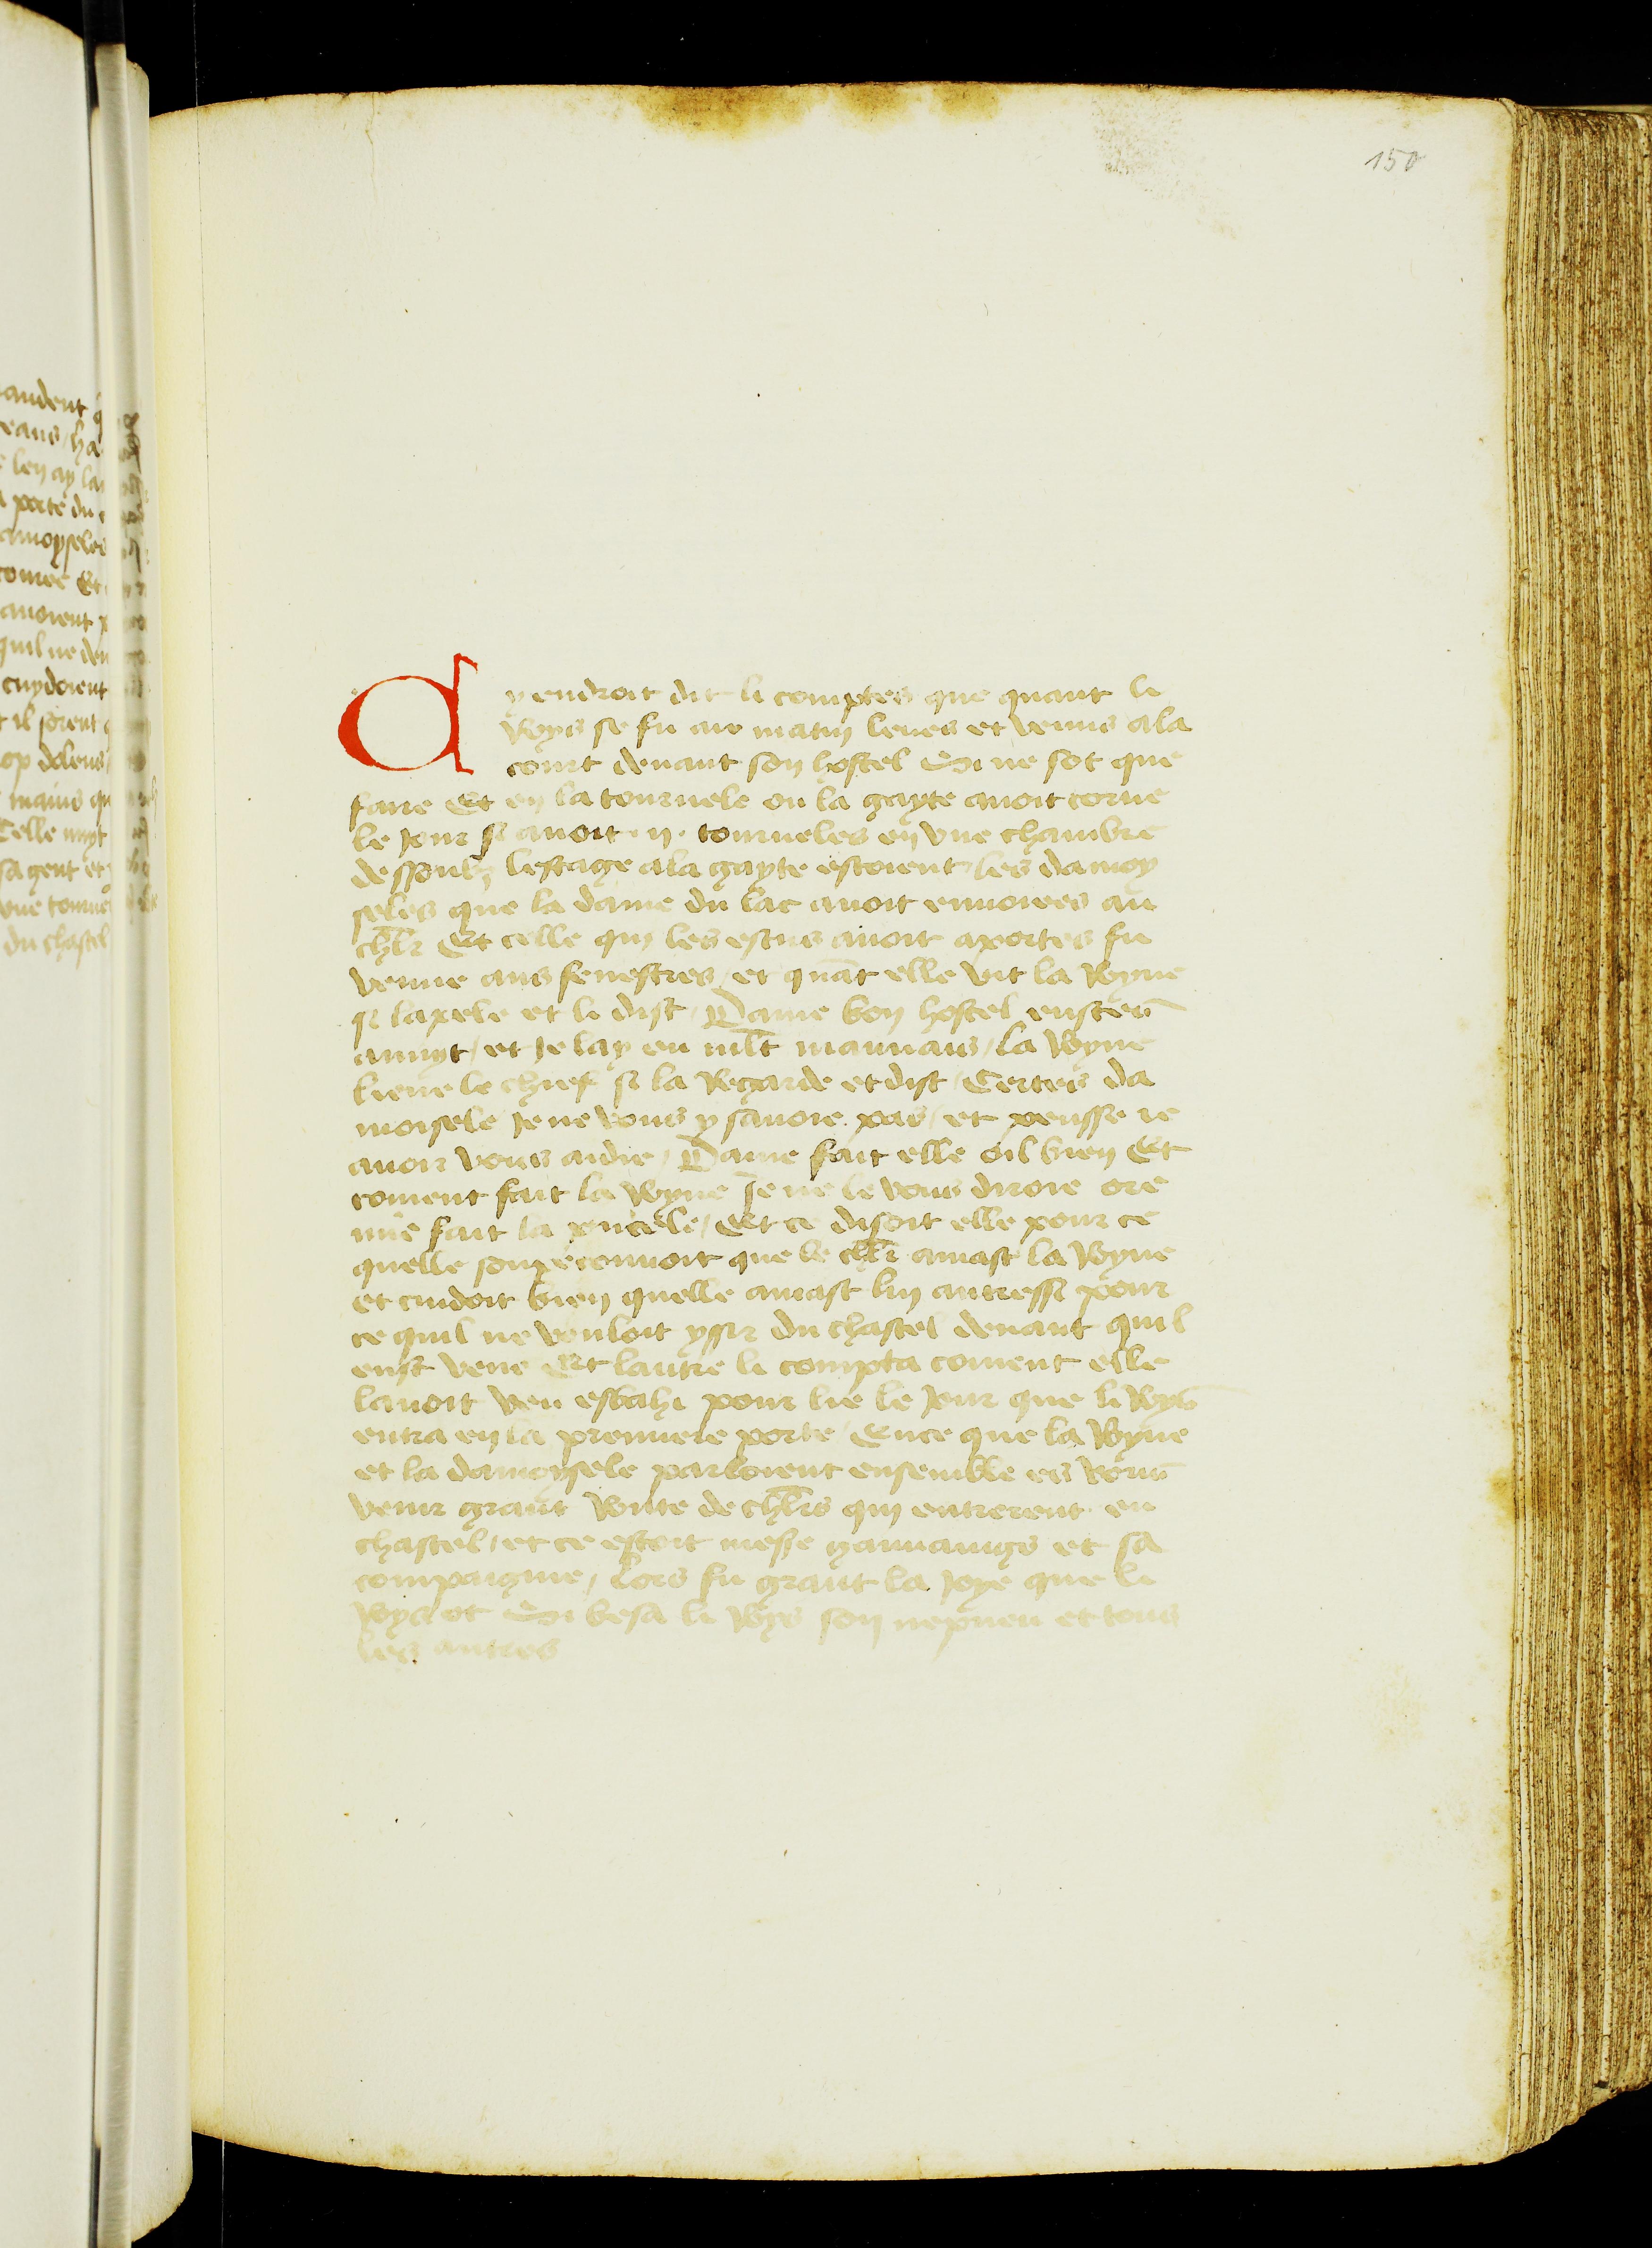 150
Cy endroit dit li comptes que quant li
Roys se fu au matin leues et venus ala
court deuant son hostel Si ne sot que
faire Et en la tournele ou la gayte auoit corne
le jour si auoit .ii. tourneles en vne chambre
dessoubz lestage ala gayte estoient les damoy
seles que la dame du lac auoit enuoiees au
chlr̄ Et celle qui les escus auoit aportes fu
venue aus fenestres / et quāt elle vit la Royne
si lapele et li dist / Dame bon hostel eustes
anuyt / et Je lay eu mlt̄ mauuais / la Royne
lieue le chief si la Regarde et dist / Certes da
moisele Je ne vous y sauoie pas / et peusse ie
auoir vous aidie / Dame fait elle oil bien Et
coment fait la Royne Je ne le vous diroie ore
mie fait la pucele / Et ce disoit elle pour ce
quelle soupeconnoit que le chlr̄ amast la Royne
et cuidoit bien quelle amast luy autressi pour
ce quil ne vouloit yssir du chastel deuant quil
eust veue Et lautre li compta coment elle
lauoit veu esbahi pour lie le Jour que li Roys
entra en la premiere porte / Ence que la Royne
et la damoysele parloient ensemble es
venir grant Route de chlr̄s qui entrerent en
chastel / et ce estoit messe gauuaings et sa
compaignie / Lors fu grant la Joye que li
Roys ot Si besa li Roys son nepueu et tous
les autres